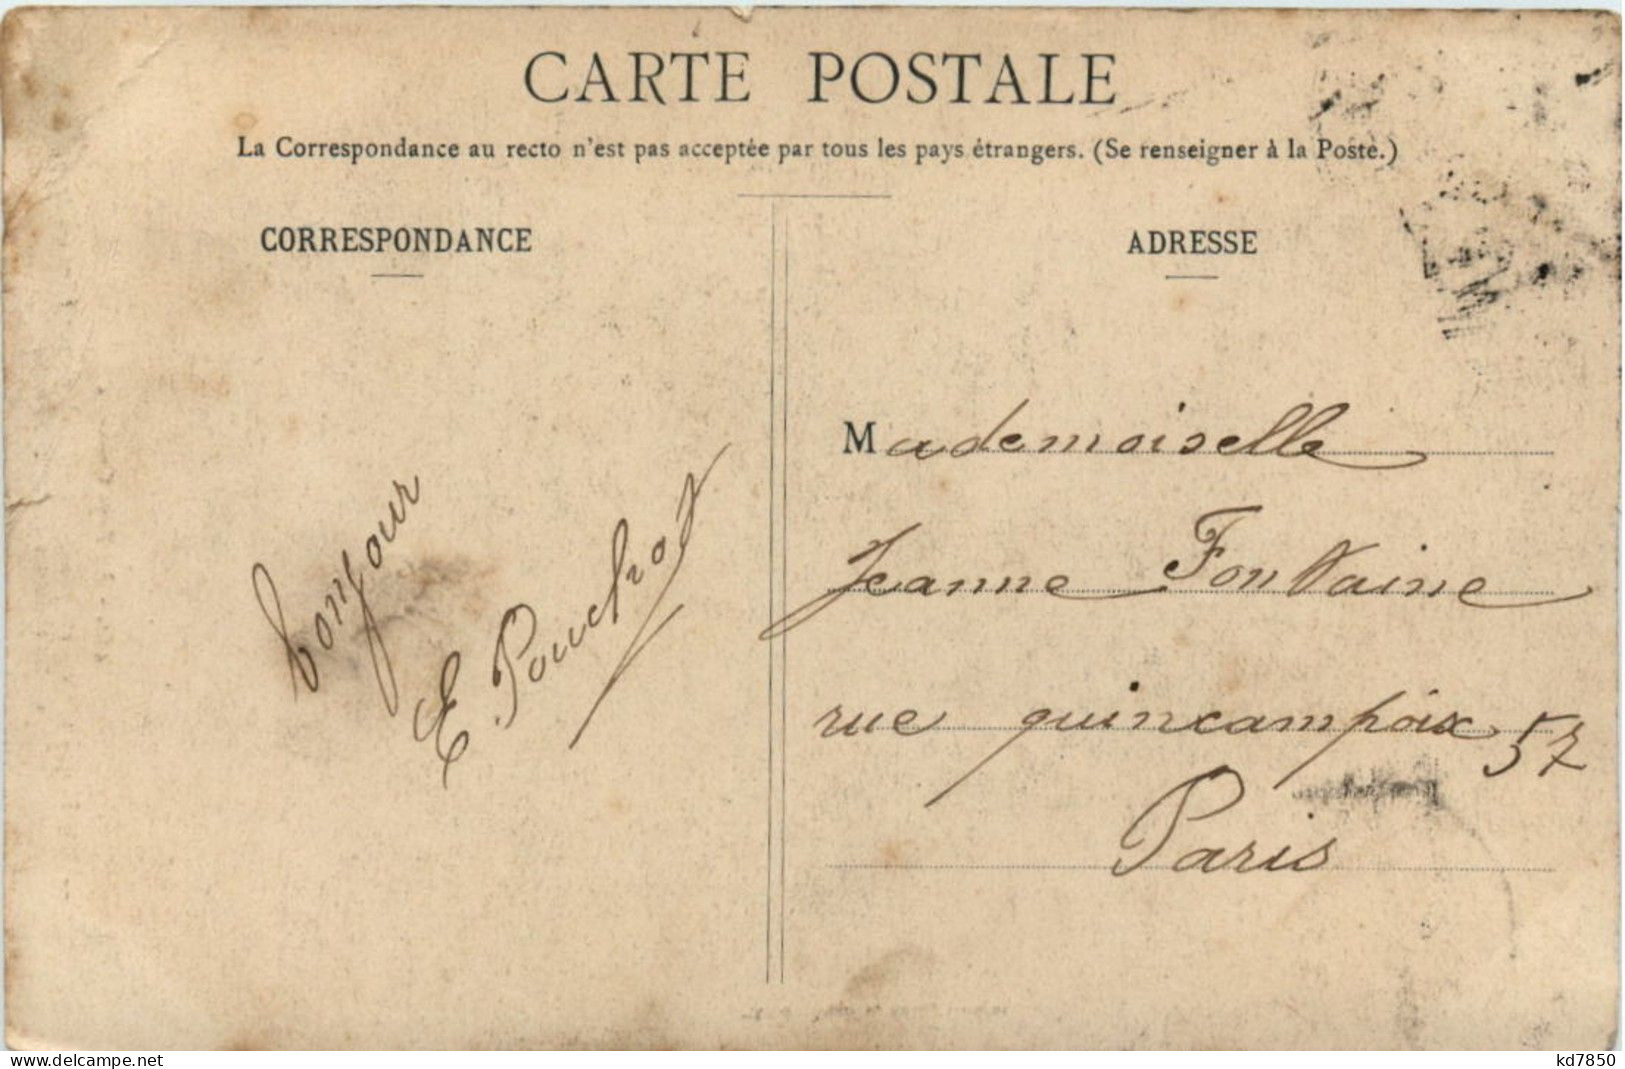 CARTE POSTALE
La Correspondance au recto n'est pas acceptée par tous les pays étrangers. (Se renseigner à la Poste.)
CORRESPONDANCE
bonjour
E
ADRESSE
Mademoiselle
Jeanne Fontaine
rue quincampoix 57
Paris
www.delcampe.net
kd7850